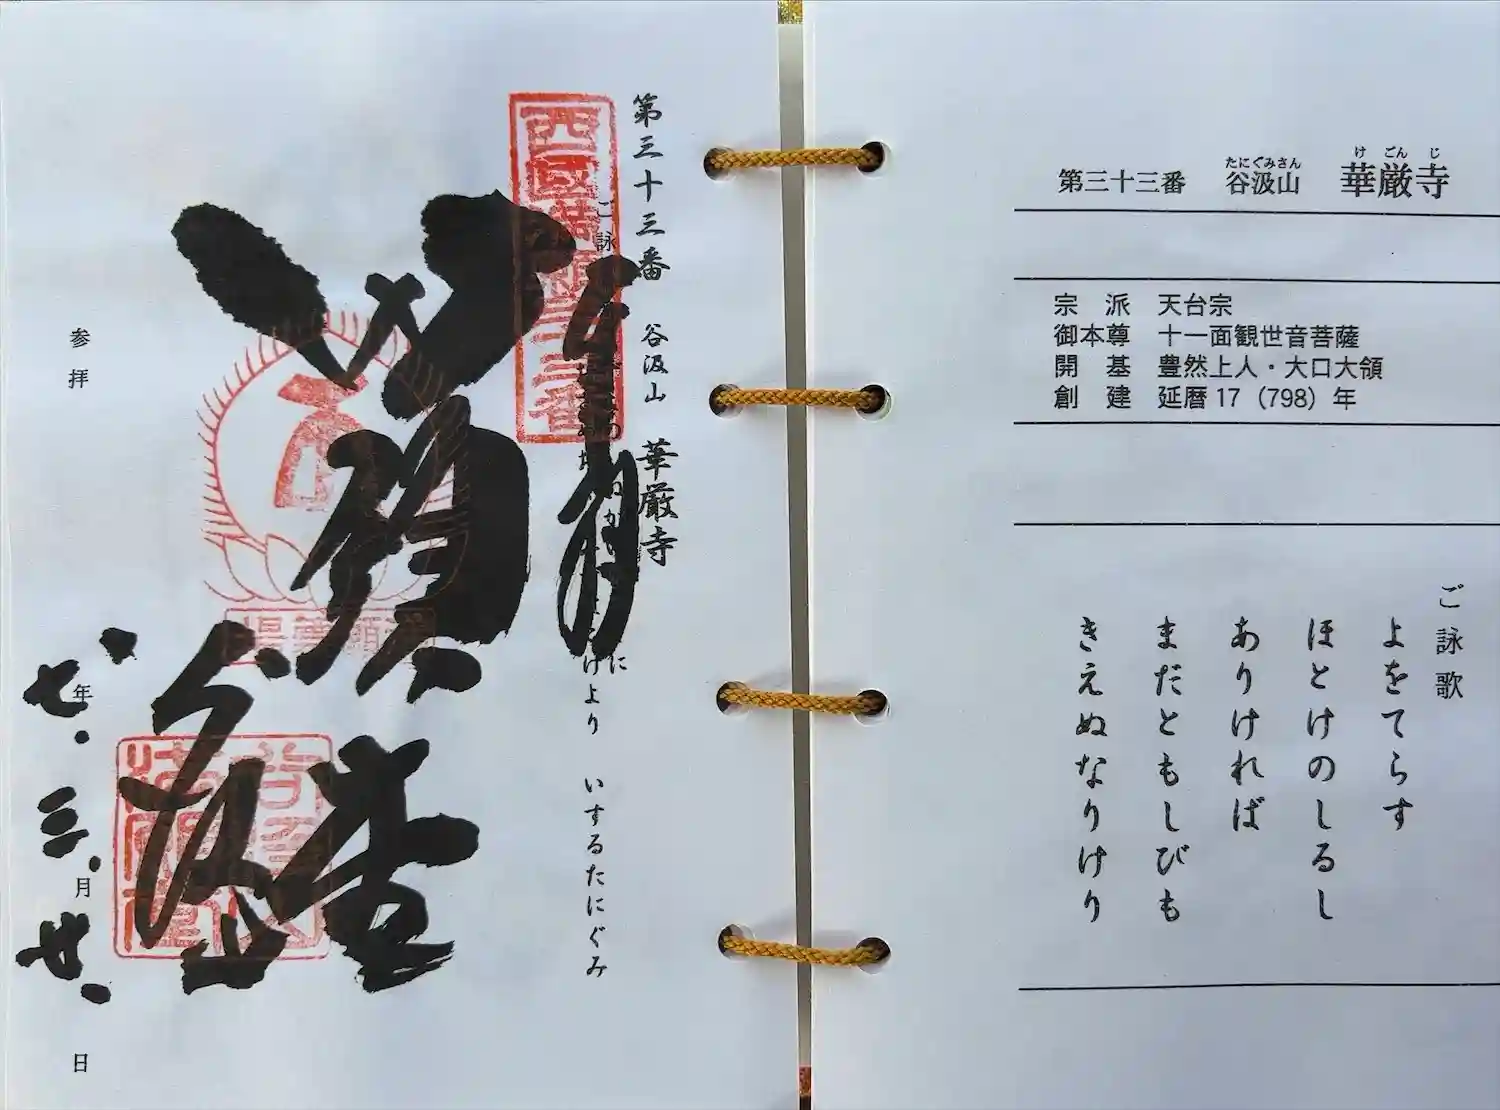 第三十三番 谷汲山 華厳寺
たにぐみさん
けごんじ
宗派 天台宗
御本尊 十一面観世音菩薩
開基 豊然上人・大口大領
創建 延暦17（798）年
ご詠歌
よをてらす
ほとけのしるし
ありければ
まだともしびも
きえぬなりけり
第三十三番 谷汲山 華厳寺
西國満願三十三番
ご詠
けより いするたにぐみ
満願堂
谷汲山
参拝
七年三月廿日